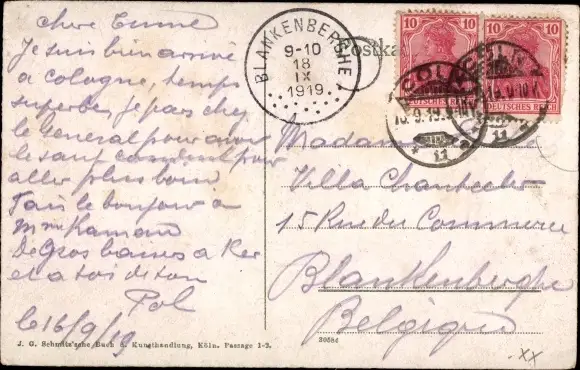 chere Emme
Je suis bien arrivé
a cologne, temps
superbe, je pars chez
le General pour avoir
le sauf conduit pour
aller plus loin
Fais le bonjour a
Mme
De Gros a
et a toi de ton
Pol
le 16/9/19
J. G. Schmitz'sche Buch- u. Kunsthandlung, Köln. Passage 1-3.
BLANKENBERGHE
9-10
18
IX
1919
Postka
10 10
DEUTSCHES REICH
10 10
DEUTSCHES REICH
CÖLN
CÖLN
11
Madame
Villa Chantecler
15 Rue du Commerce
Blankenberghe
Belgique
xx